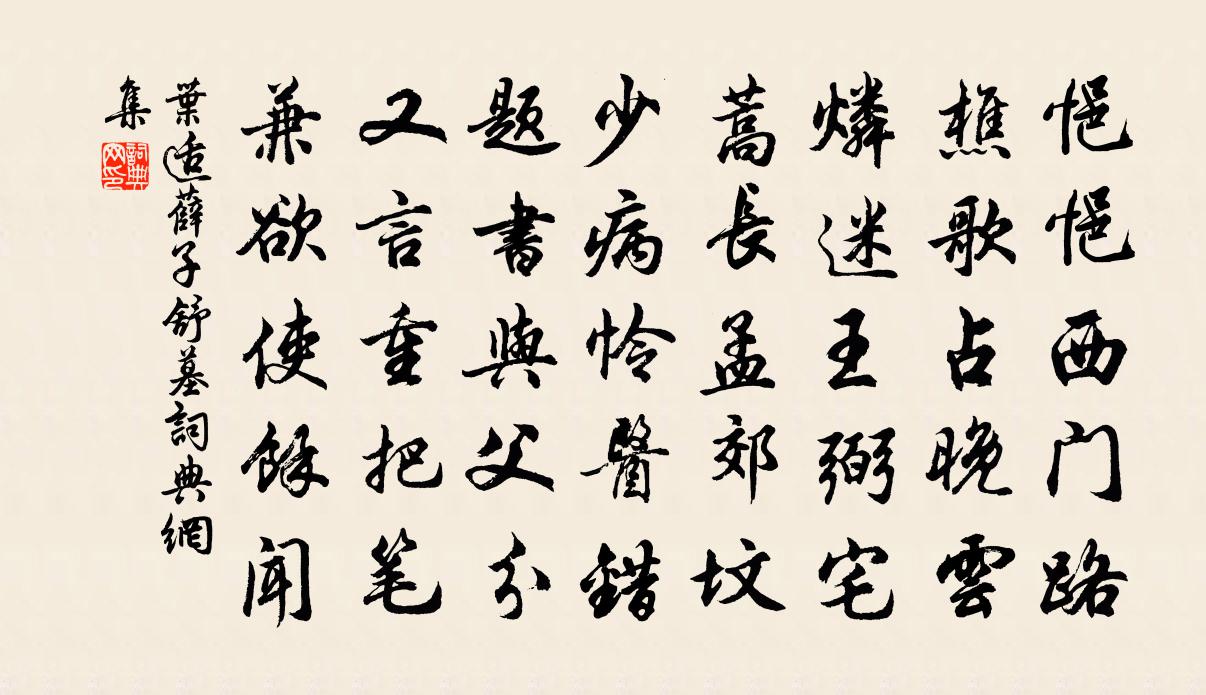 悒悒西门路
樵歌占晚雲
燐迷王弼宅
蒿長孟郊坟
少病怜醫錯
題書與父分
又言重把笔
兼欲使餘聞
葉适薛子舒墓詞典網
集
詞典網印